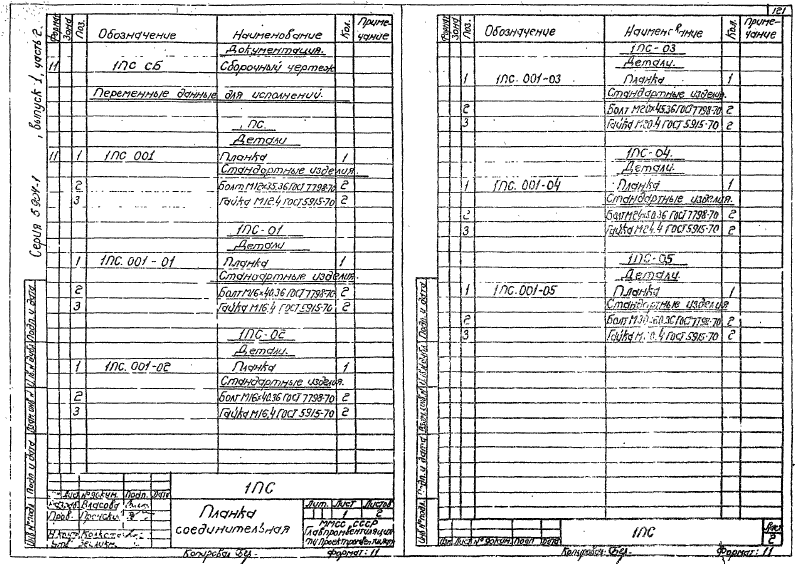 Серия 5.904-1, выпуск 1, часть 2.
Формат Зона Поз. Обозначение Наименование Кол. Примечание
Документация.
11 1ПС СБ Сборочный чертеж
Переменные данные для исполнений:
1ПС.
Детали
11 1 1ПС 001 Планка 1
Стандартные изделия.
2 Болт М12х35.36 ГОСТ 7798-70 2
3 Гайка М12.4 ГОСТ 5915-70 2
1ПС-01
Детали
1 1ПС.001-01 Планка 1
Стандартные изделия.
2 Болт М16х40.36 ГОСТ 7798-70 2
3 Гайка М16.4 ГОСТ 5915-70 2
1ПС-02
Детали.
1 1ПС.001-02 Планка 1
Стандартные изделия.
2 Болт М16х40.36 ГОСТ 7798-70 2
3 Гайка М16.4 ГОСТ 5915-70 2
Подп. и дата
Взам. инв. №
Подп. и дата
1ПС
Лист № докум. Подп. Дата
Власова
Пров.
Н.конт.
Планка соединительная
Лит. Лист Листов
1 2
ММСС СССР
Главпромвентиляция
Копировал
Формат: 11
121
Поз. Обозначение Наименование Кол. Примечание
1ПС-03
Детали.
1 1ПС.001-03 Планка 1
Стандартные изделия.
2 Болт М20х45.36 ГОСТ 7798-70 2
3 Гайка М20.4 ГОСТ 5915-70 2
1ПС-04.
Детали.
1 1ПС.001-04 Планка 1
Стандартные изделия.
2 Болт М24х50.36 ГОСТ 7798-70 2
3 Гайка М24.4 ГОСТ 5915-70 2
1ПС-05
Детали.
1 1ПС.001-05 Планка 1
Стандартные изделия
2 Болт ГОСТ 7798-70 2
3 Гайка ГОСТ 5915-70 2
Подп. и дата
Подп. и дата
Изм. Лист № докум. Подп. Дата
1ПС
Лист
2
Копировал
Формат: 11